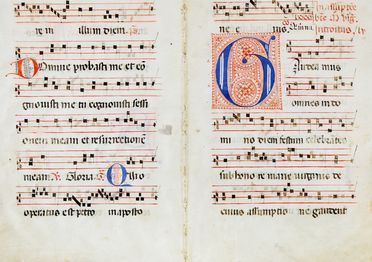 re in illum diem.
Domine probasti me et co
gnouisti me tu cognouisti sessi
onem meam et resurrectione
meam. Gloria. Qui
operatus est petro in aposto
ne
Gaudeamus
omnes in do
mino diem festum celebrantes
sub honore marie uirginis de
cuius assumptione gaudent